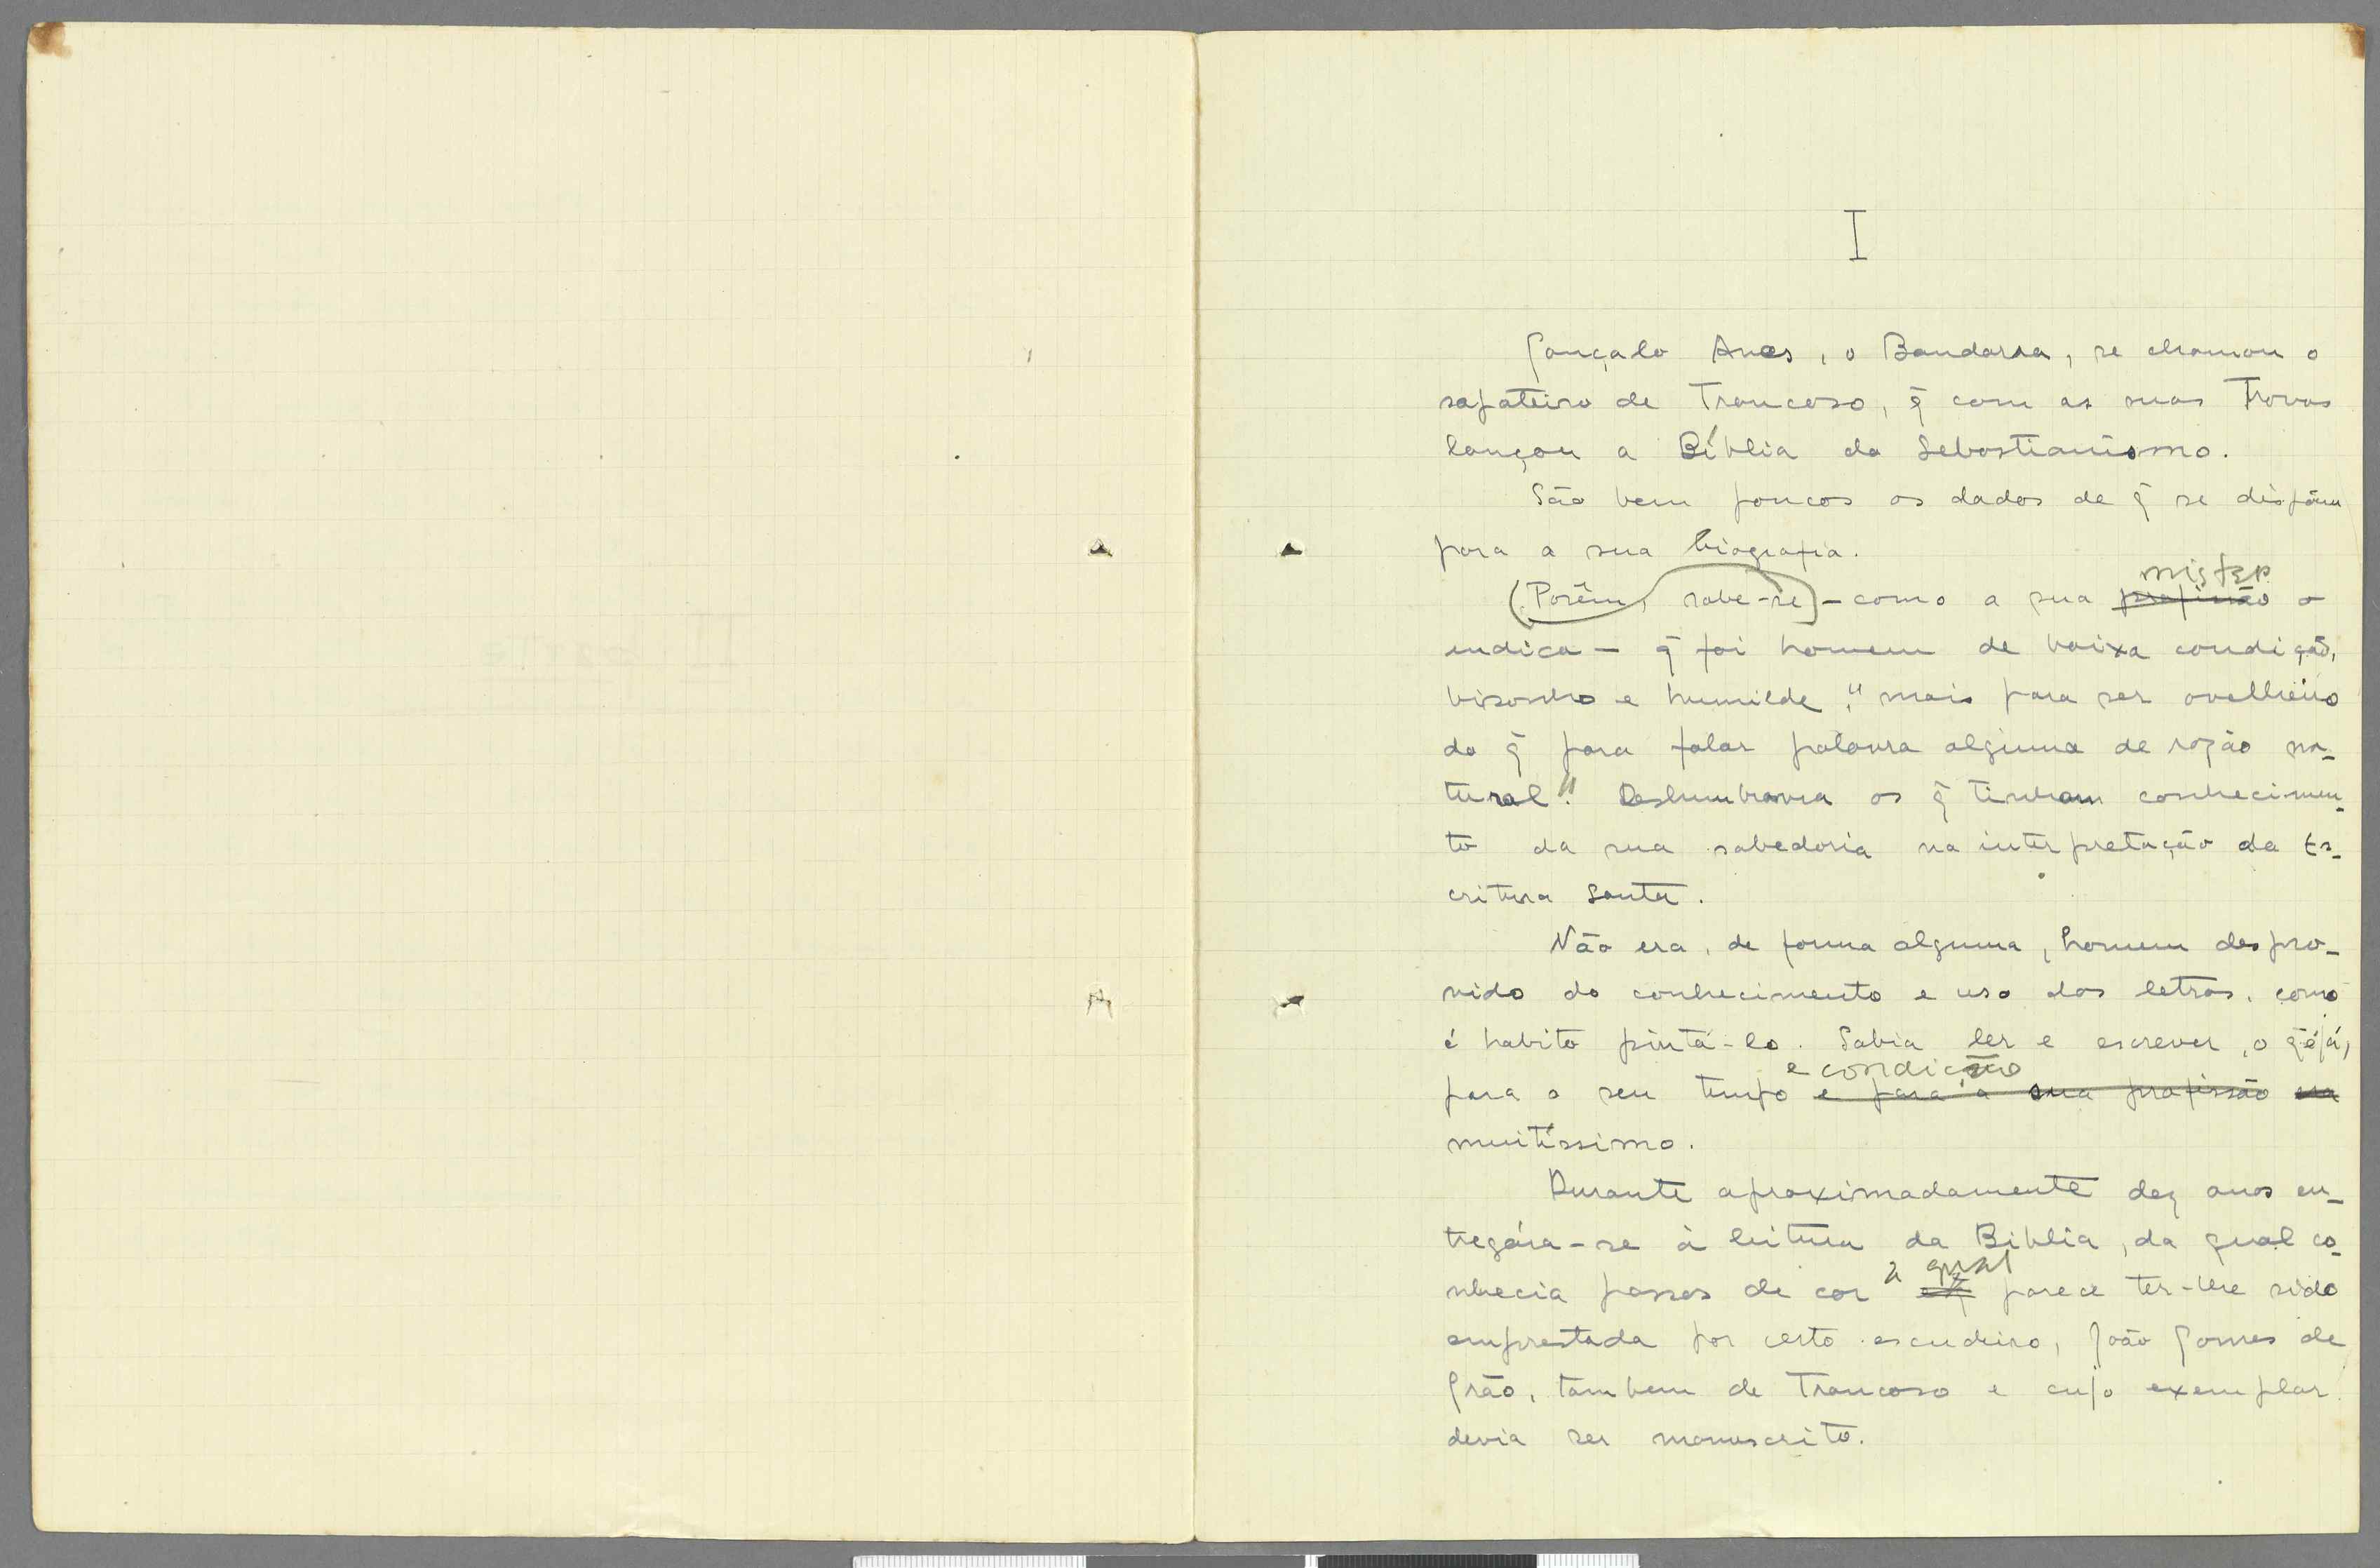 I
Gonçalo Anes, o Bandarra, se chamou o
sapateiro de Trancoso, q̃ com as suas Trovas
lançou a Bíblia do Sebastianismo.
São bem poucos os dados de q̃ se dispõem
para a sua biografia.
(Porêm, sabe-se) - como a sua profissão mister o
indica - q̃ foi homem de baixa condição,
bisonho e humilde, "mais para ser ovelheiro
do q̃ para falar palavra alguma de razão na-
tural". Deslumbrava os q̃ tinham conhecimen-
to da sua sabedoria na interpretação da Es-
critura Santa.
Não era, de forma alguma, homem despro-
vido do conhecimento e uso das letras, como
é habito pintá-lo. Sabia ler e escrever, o q̃ é já,
para o seu tempo e para a sua profissão era e condição
muitíssimo.
Durante aproximadamente dez anos en-
tregára-se à leitura da Biblia, da qual co-
nhecia passos de cor a qual parece ter-lhe sido
emprestada por certo escudeiro, João Gomes de
Grão, tambem de Trancoso e cujo exemplar
devia ser manuscrito.